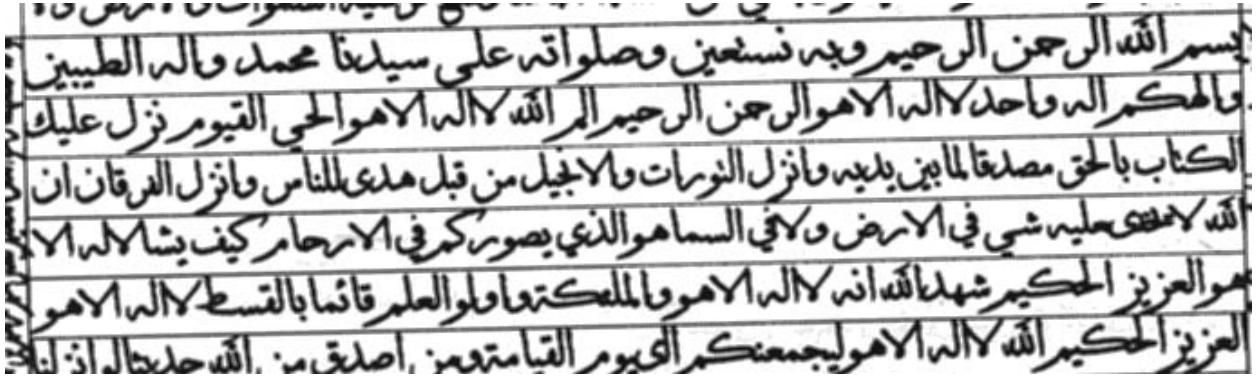 بسم الله الرحمن الرحيم وبه نستعين وصلواته على سيدنا محمد واله الطيبين
والهكم اله واحد لا اله الا هو الرحمن الرحيم الم الله لا اله الا هو الحي القيوم نزل عليك
الكتاب بالحق مصدقا لما بين يديه وانزل التورات والانجيل من قبل هدى للناس وانزل الفرقان ان
الله لا يخفى عليه شي في الارض ولا في السما هو الذي يصوركم في الارحام كيف يشا لا اله الا
هو العزيز الحكيم شهد الله انه لا اله الا هو والملئكة واولو العلم قائما بالقسط لا اله الا هو
العزيز الحكيم الله لا اله الا هو ليجمعنكم الى يوم القيامة ومن اصدق من الله حديثا